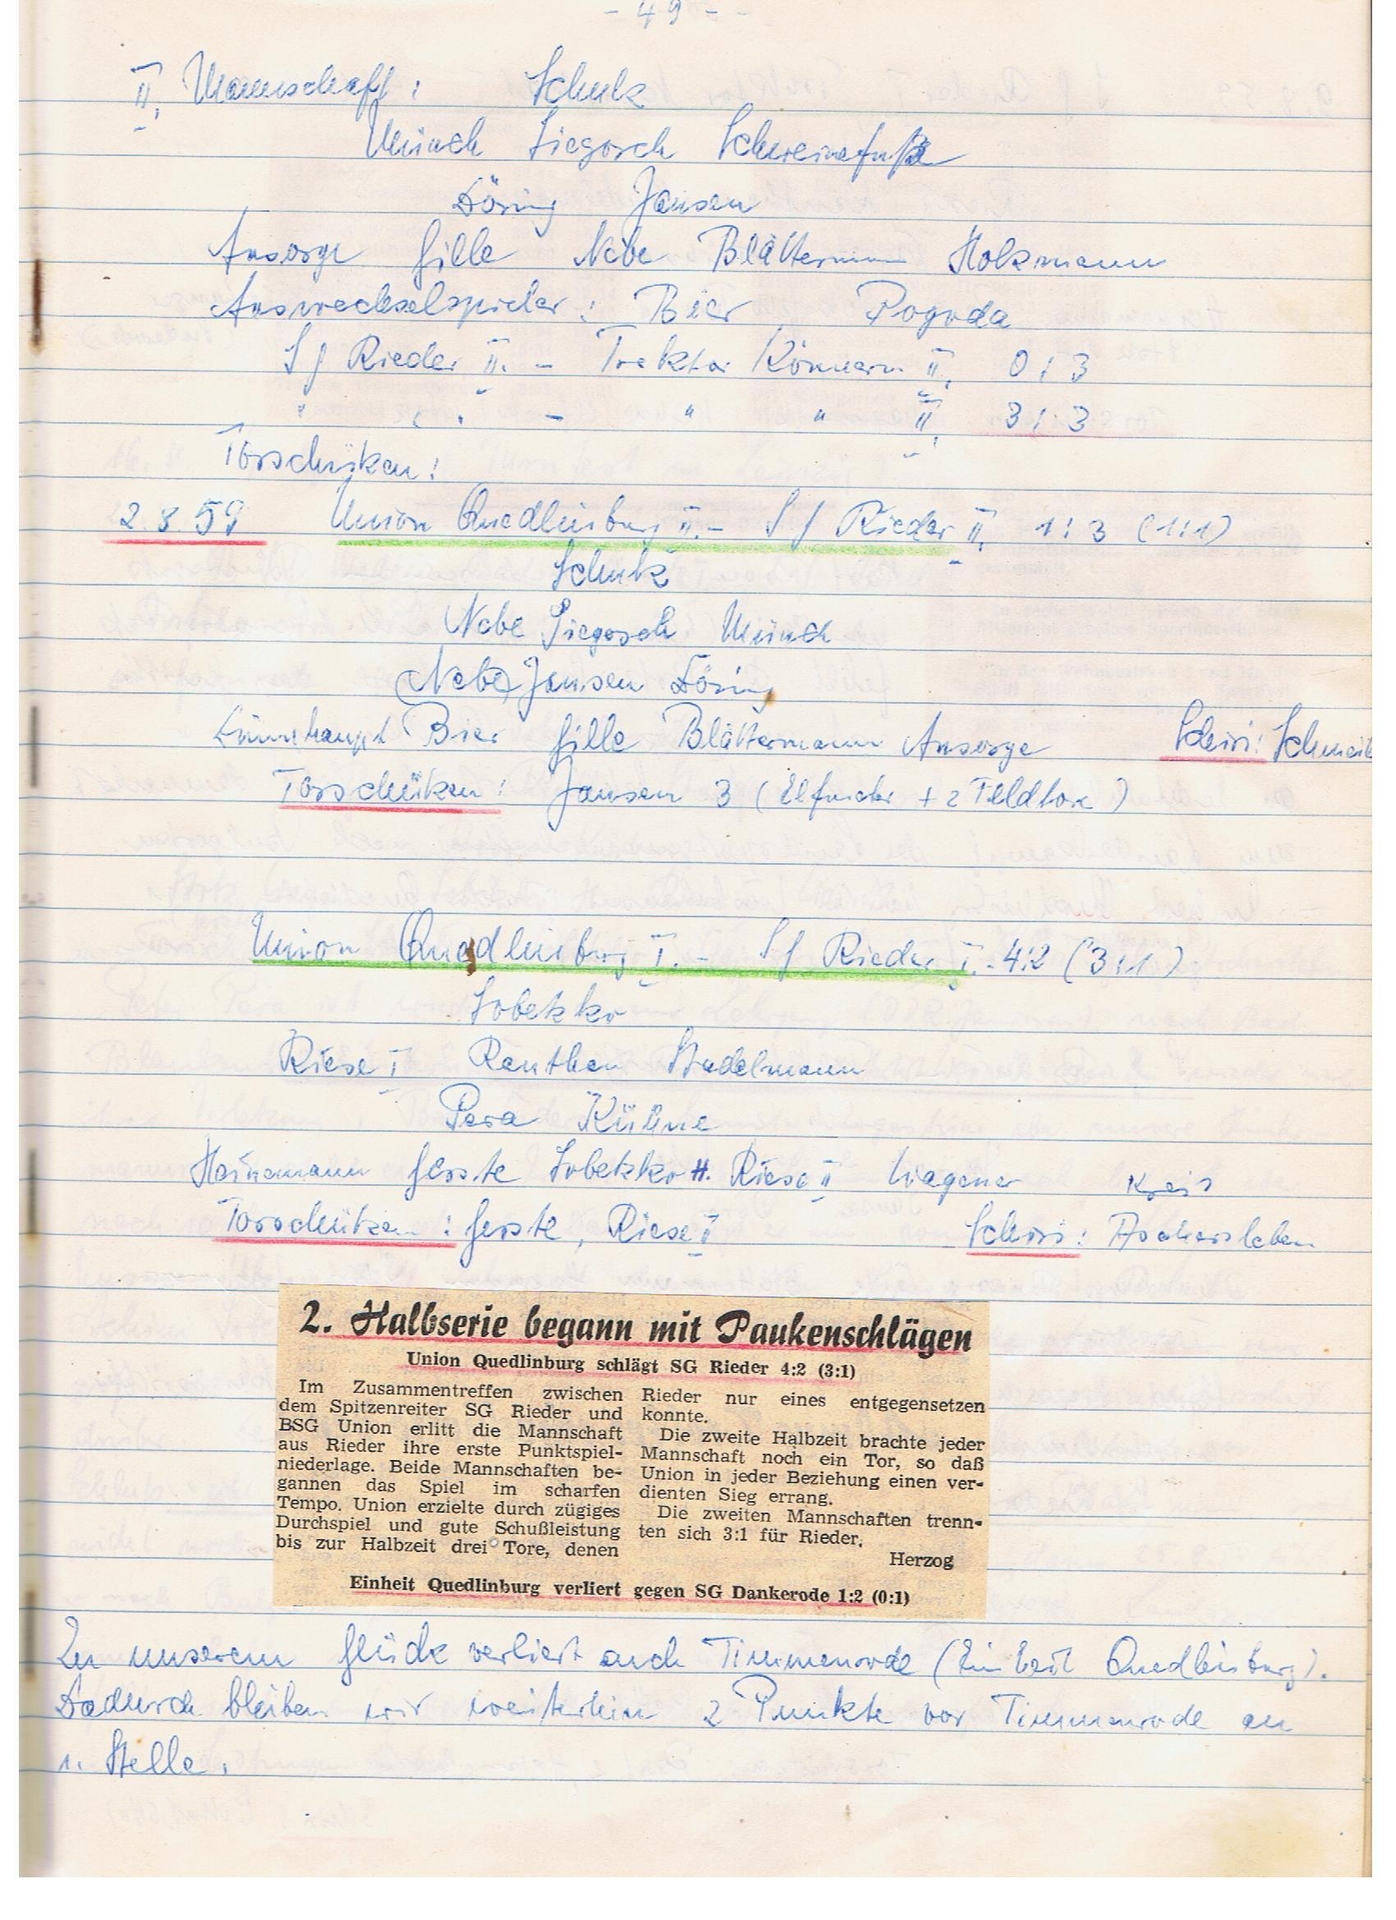 - 49 -
II. Mannschaft: Schulz
Münch Siegosch Schweinefuß
Döring Jansen
Ansorge Hille Nebe Blättermann Holzmann
Auswechselspieler: Bier Pogoda
SG Rieder II. - Traktor Könnern II. 0:3
" " . - " " II. 3:3
Torschützen:
2.8.59 Union Quedlinburg II. - SG Rieder II. 1:3 (1:1)
Schulz
Nebe Siegosch Münch
(Nebe) Jansen Döring
Dünnhaupt Bier Hille Blättermann Ansorge Schiri:
Torschützen: Jansen 3 (Elfmeter + 2 Feldtore)
Union Quedlinburg I. - SG Rieder I. - 4:2 (3:1)
Sobetzko
Riese I Ranthan Stadelmann
Pera Kühne
Heinemann Gerste Sobetzko H. Riese II Wagener Kreis
Torschützen: Gerste, Riese I Schiri: Aschersleben
2. Halbserie begann mit Paukenschlägen
Union Quedlinburg schlägt SG Rieder 4:2 (3:1)
Im Zusammentreffen zwischen
dem Spitzenreiter SG Rieder und
BSG Union erlitt die Mannschaft
aus Rieder ihre erste Punktspiel-
niederlage. Beide Mannschaften be-
gannen das Spiel im scharfen
Tempo. Union erzielte durch zügiges
Durchspiel und gute Schußleistung
bis zur Halbzeit drei Tore, denen
Rieder nur eines entgegensetzen
konnte.
Die zweite Halbzeit brachte jeder
Mannschaft noch ein Tor, so daß
Union in jeder Beziehung einen ver-
dienten Sieg errang.
Die zweiten Mannschaften trenn-
ten sich 3:1 für Rieder.
Herzog
Einheit Quedlinburg verliert gegen SG Dankerode 1:2 (0:1)
Zu unserem Glück verliert auch Timmenrode (Einheit Quedlinburg).
Dadurch bleiben wir weiterhin 2 Punkte vor Timmenrode an
1. Stelle.